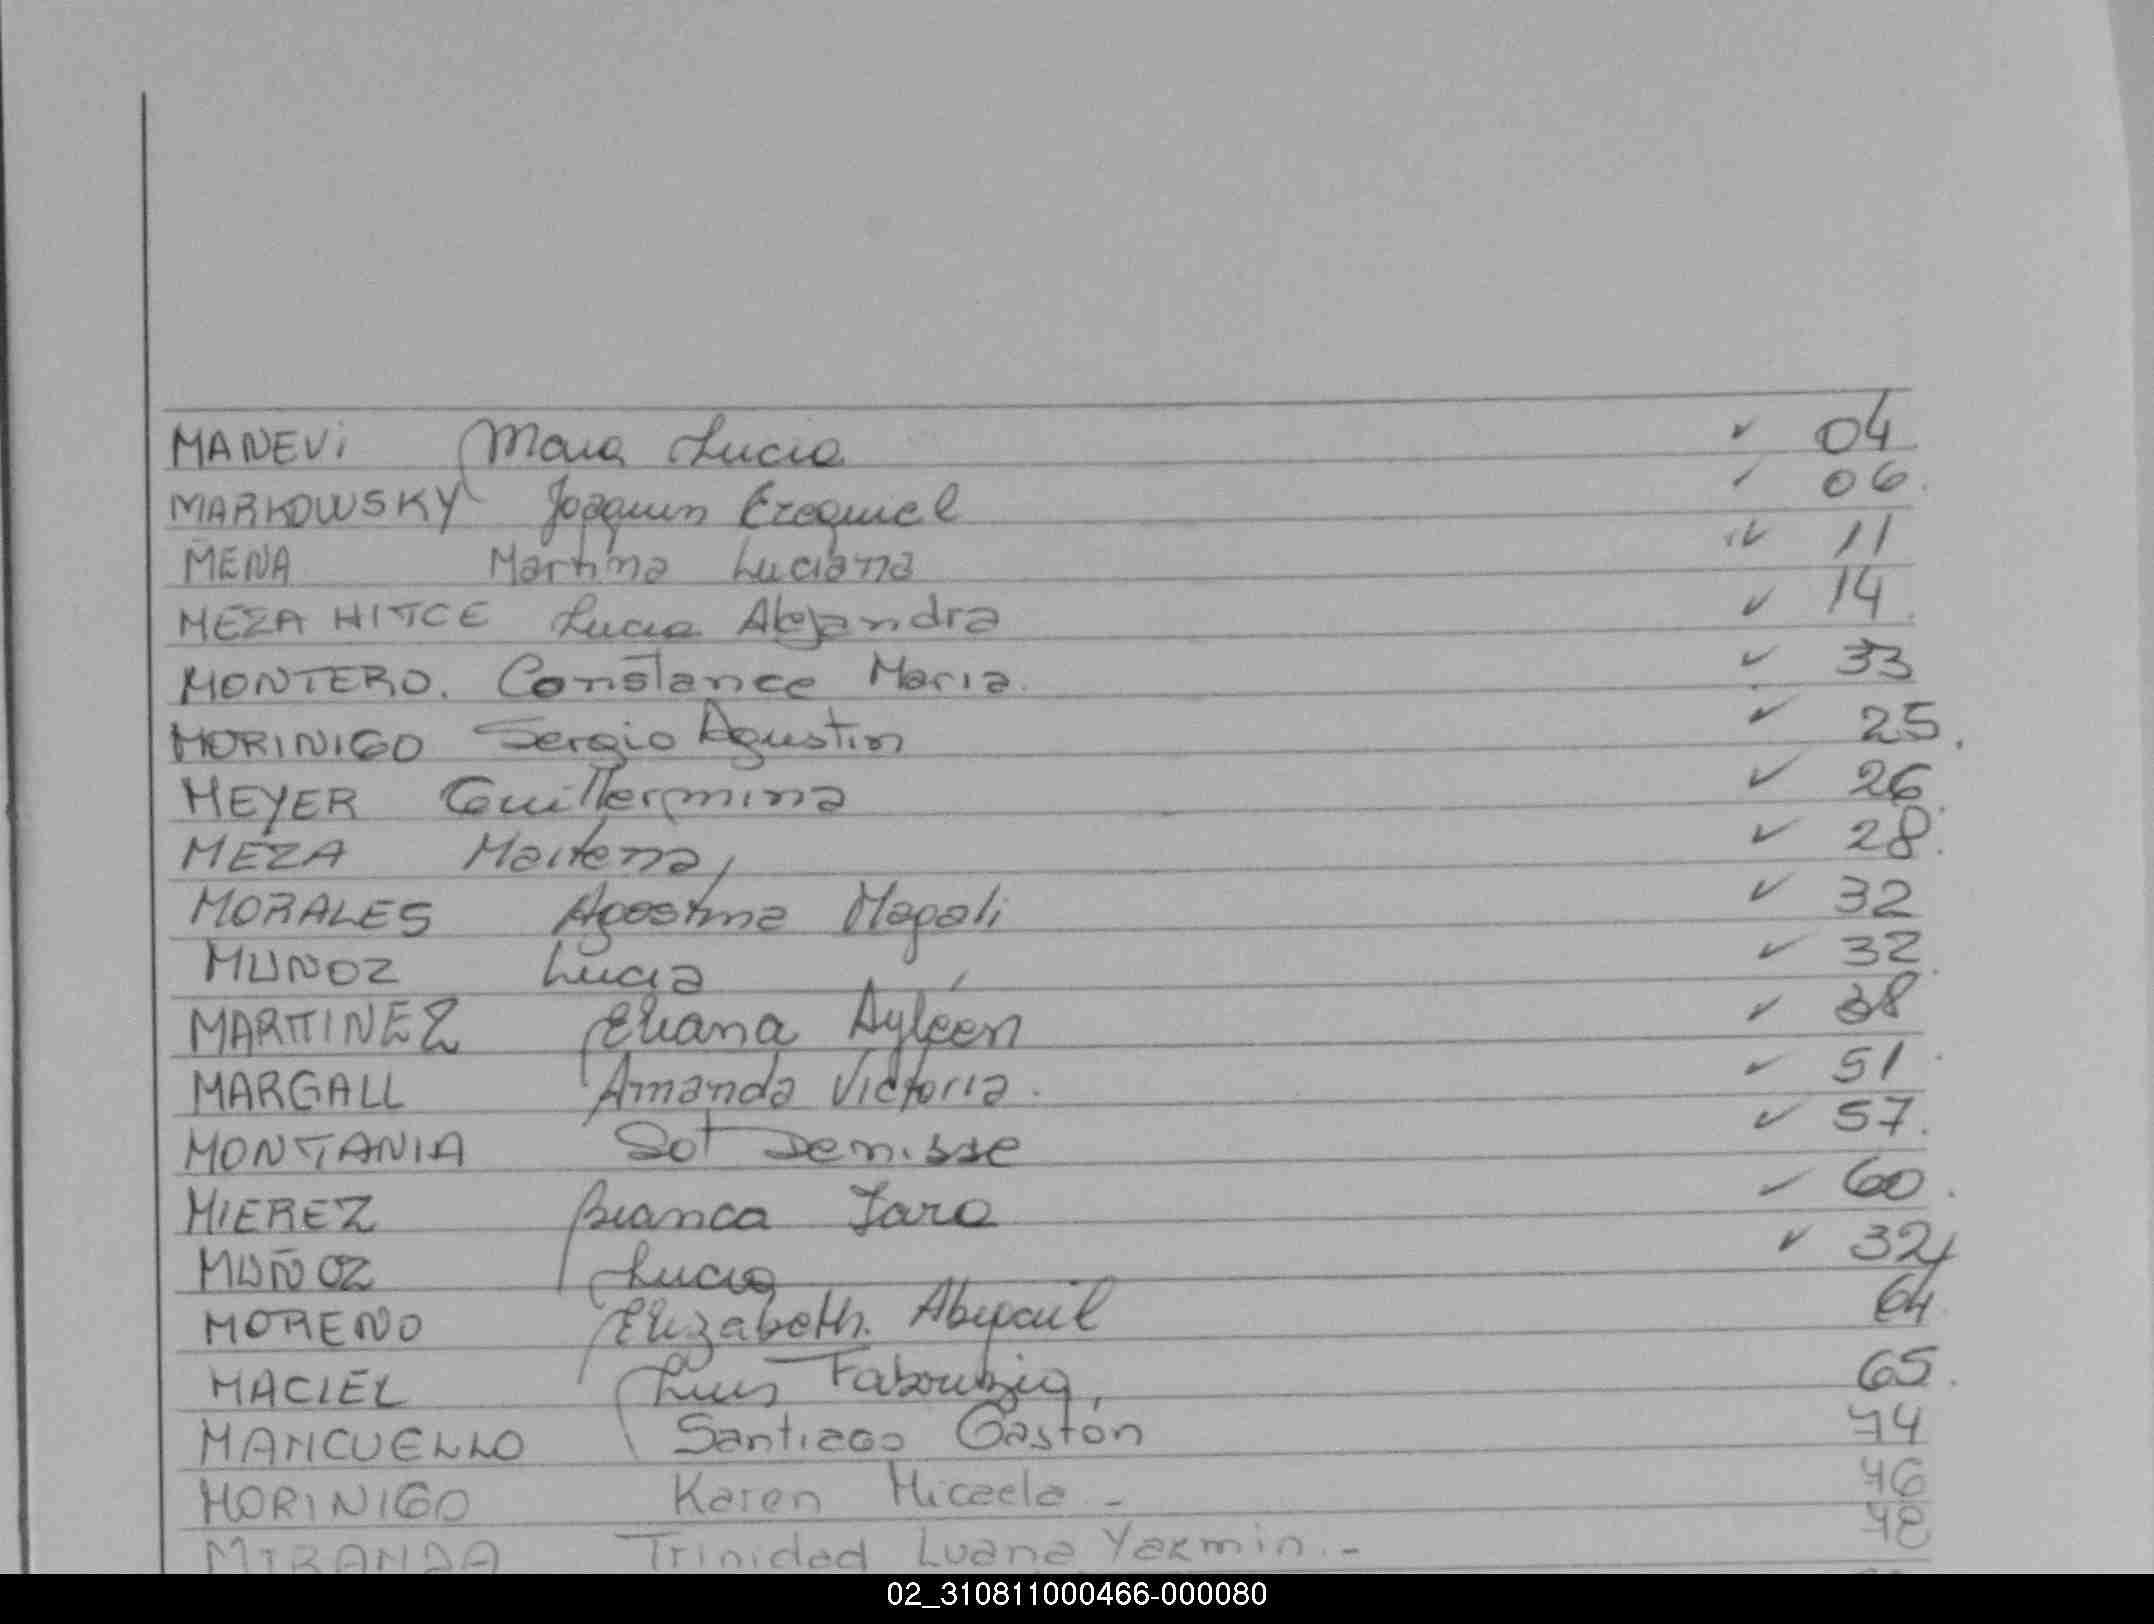 MANEVi Maia Lucia ✓ 04
MARKOWSKY Joaquin Ezequiel ✓ 06.
MENA Martina Luciana ✓ 11
MEZA HITCE Lucia Alejandra ✓ 14.
MONTERO. Constance Maria. ✓ 33
MORINIGO Sergio Agustin ✓ 25.
MEYER Guillermina ✓ 26.
MEZA Maitena ✓ 28.
MORALES Agostina Magali ✓ 32
MUNOZ Lucia ✓ 32.
MARTINEZ Eliana Ayleen ✓ 38
MARGALL Amanda Victoria. ✓ 51.
MONTANIA Sol Denisse ✓ 57.
MIEREZ Bianca Iara ✓ 60.
MUÑOZ Lucia ✓ 32
MORENO Elizabeth. Abigail 64.
MACIEL Luis 65.
MANCUELLO Santiago Gastón 74
MORINIGO Karen Micaela - 76
MIRANDA Trinidad Luana Yazmin.- 78
02_310811000466-000080